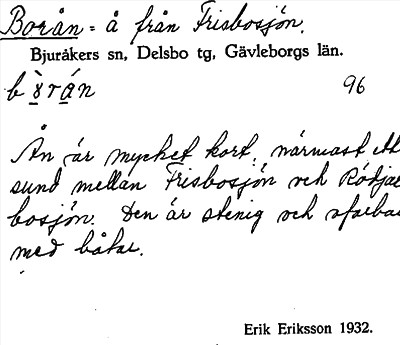 Borån = å från Frisbosjön.
Bjuråkers sn, Delsbo tg, Gävleborgs län.
bɤ̀rán 96
Ån är mycket kort, närmast ett
sund mellan Frisbosjön och Rödjae
bosjön. Den är stenig och ofarbar
med båtar.
Erik Eriksson 1932.